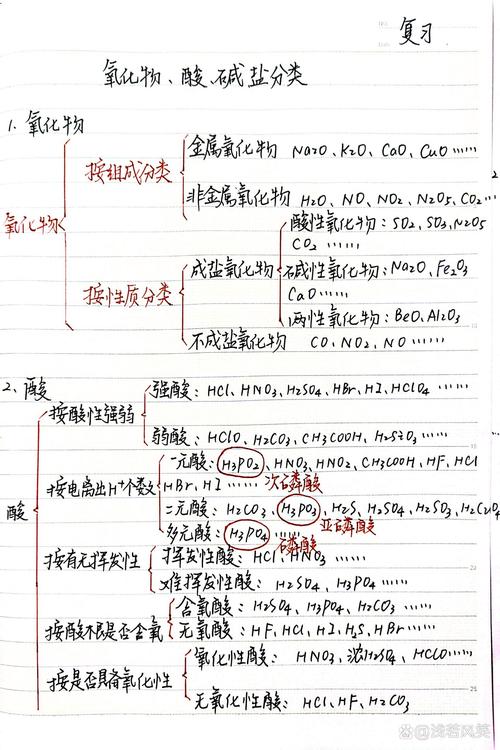 复习
氧化物、酸、碱盐分类
1. 氧化物
氧化物
按组成分类
金属氧化物 Na2O、K2O、CaO、CuO ……
非金属氧化物 H2O、NO、NO2、N2O5、CO2…
按性质分类
成盐氧化物
酸性氧化物：SO2、SO3、N2O5
CO2 ……
碱性氧化物：Na2O、Fe2O3
CaO ……
两性氧化物：BeO、Al2O3
不成盐氧化物 CO、NO2、NO ……
2、酸
酸
按酸性强弱
强酸：HCl、HNO3、H2SO4、HBr、HI、HClO4 ……
弱酸：HClO、H2CO3、CH3COOH、H2SiO3 ……
按电离出H+个数
一元酸：H3PO2、HNO3、HNO2、CH3COOH、HF、HCl
HBr、HI …… 次磷酸
二元酸：H2CO3、H3PO3、H2S、H2SO4、H2SO3、H2C2O4
亚磷酸
多元酸：H3PO4 ……
磷酸
按有无挥发性
挥发性酸：HCl、HNO3 ……
难挥发性酸：H2SO4、H3PO4 ……
按酸根是否含氧
含氧酸：H2SO4、H3PO4、H2CO3 ……
无氧酸：HF、HCl、HI、H2S、HBr ……
按是否具备氧化性
氧化性酸：HNO3、浓H2SO4、HClO ……
无氧化性酸：HCl、HF、H2CO3
@浅若风笑